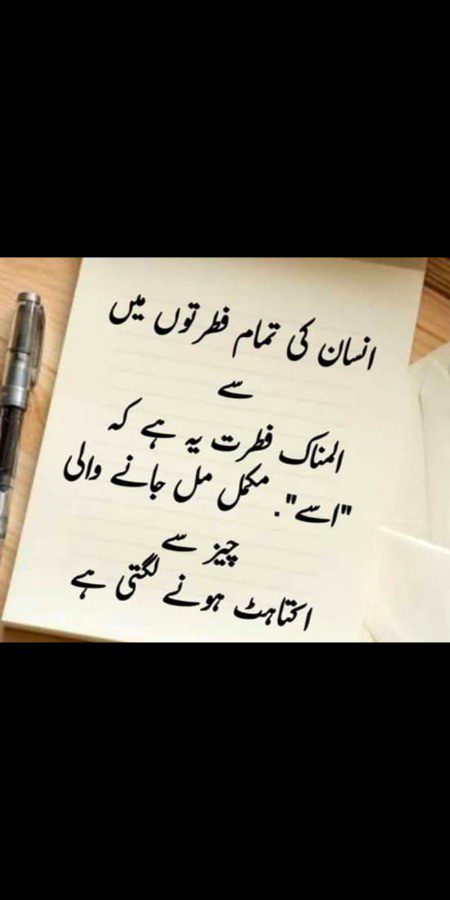 انسان کی تمام فطرتوں میں
سے
المناک فطرت یہ ہے کہ
"اسے". مکمل مل جانے والی
چیز سے
اکتاہٹ ہونے لگتی ہے